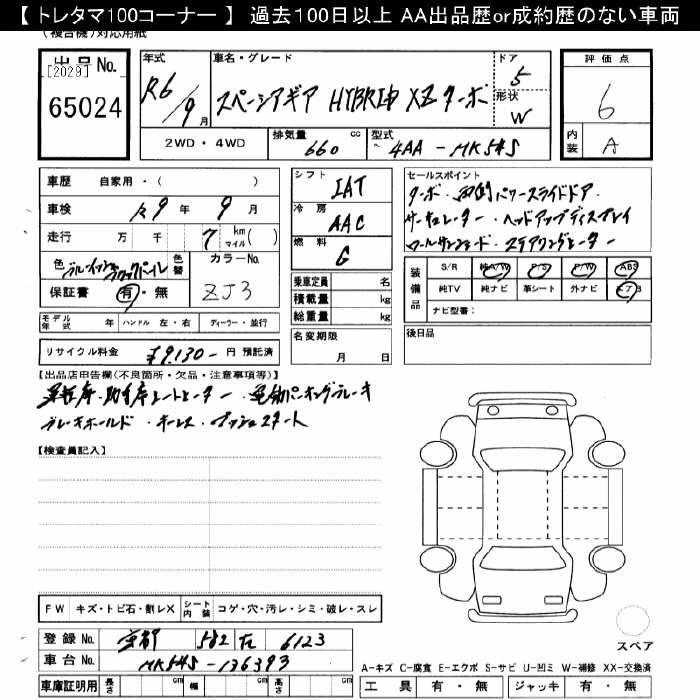 【 トレタマ100コーナー 】 過去100日以上 AA出品歴or成約歴のない車両
(複合機)対応用紙
出品No.
[2029]
65024
年式
R6/9月
車名・グレード
スペーシアギア HYBRID XZターボ
ドア
5
形状
W
評価点
6
内装
A
2WD・4WD
排気量
660
cc
型式
4AA-MK54S
車歴 自家用・( )
車検 R9年 9月
走行 万 千 7 km マイル( )
色 ブルーイッシュブラックパール
色替
カラーNo.
ZJ3
保証書 有・無
モデル年式 年 ハンドル 左・右 ディーラー・並行
リサイクル料金 ¥9,130- 円 預託済
シフト
IAT
冷房
AAC
燃料
G
乗車定員 名
積載量 kg
総重量 kg
名変期限
月 日
セールスポイント
ターボ・両側パワースライドドア・
サーキュレーター・ヘッドアップディスプレイ
ロールサンシェード・ステアリングヒーター
装備品
S/R 純A/W P/S P/W ABS
純TV 純ナビ 革シート 外ナビ エアB
ナビ型番:
後日品
【出品店申告欄(不良箇所・欠品・注意事項等)】
運転席・助手席シートヒーター・電動パーキングブレーキ
ブレーキホールド・キーレス・プッシュスタート
【検査員記入】
FW キズ・トビ石・割レX
シート内装 コゲ・穴・汚レ・シミ・破レ・スレ
登録No. 京都 582 た 6123
車台No. MK54S-136393
車庫証明用 長さ cm 幅 cm 高さ cm
スペア
A-キズ C-腐食 E-エクボ S-サビ U-凹ミ W-補修 XX-交換済
工具 有・無 ジャッキ 有・無